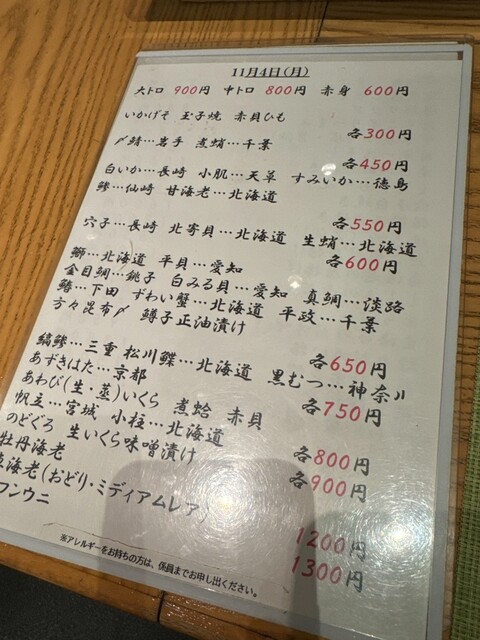 11月4日(月)
大トロ 900円 中トロ 800円 赤身 600円
いかげそ 玉子焼 赤貝ひも
各300円
〆鯖…岩手 煮蛸…千葉
各450円
白いか…長崎 小肌…天草 すみいか…徳島
鯵…仙崎 甘海老…北海道
各550円
穴子…長崎 北寄貝…北海道 生蛸…北海道
各600円
鰤…北海道 平貝…愛知
金目鯛…銚子 白みる貝…愛知 真鯛…淡路
鰆…下田 ずわい蟹…北海道 平政…千葉
方々昆布〆 鱒子正油漬け
各650円
縞鯵…三重 松川鰈…北海道 黒むつ…神奈川
あずきはた…京都
各750円
あわび(生・蒸)いくら 煮蛤 赤貝
帆立…宮城 小柱…北海道
各800円
のどぐろ 生いくら味噌漬け
各900円
牡丹海老
海老(おどり・ミディアムレア)
1200円
フンウニ
1300円
※アレルギーをお持ちの方は、係員までお申し出ください。